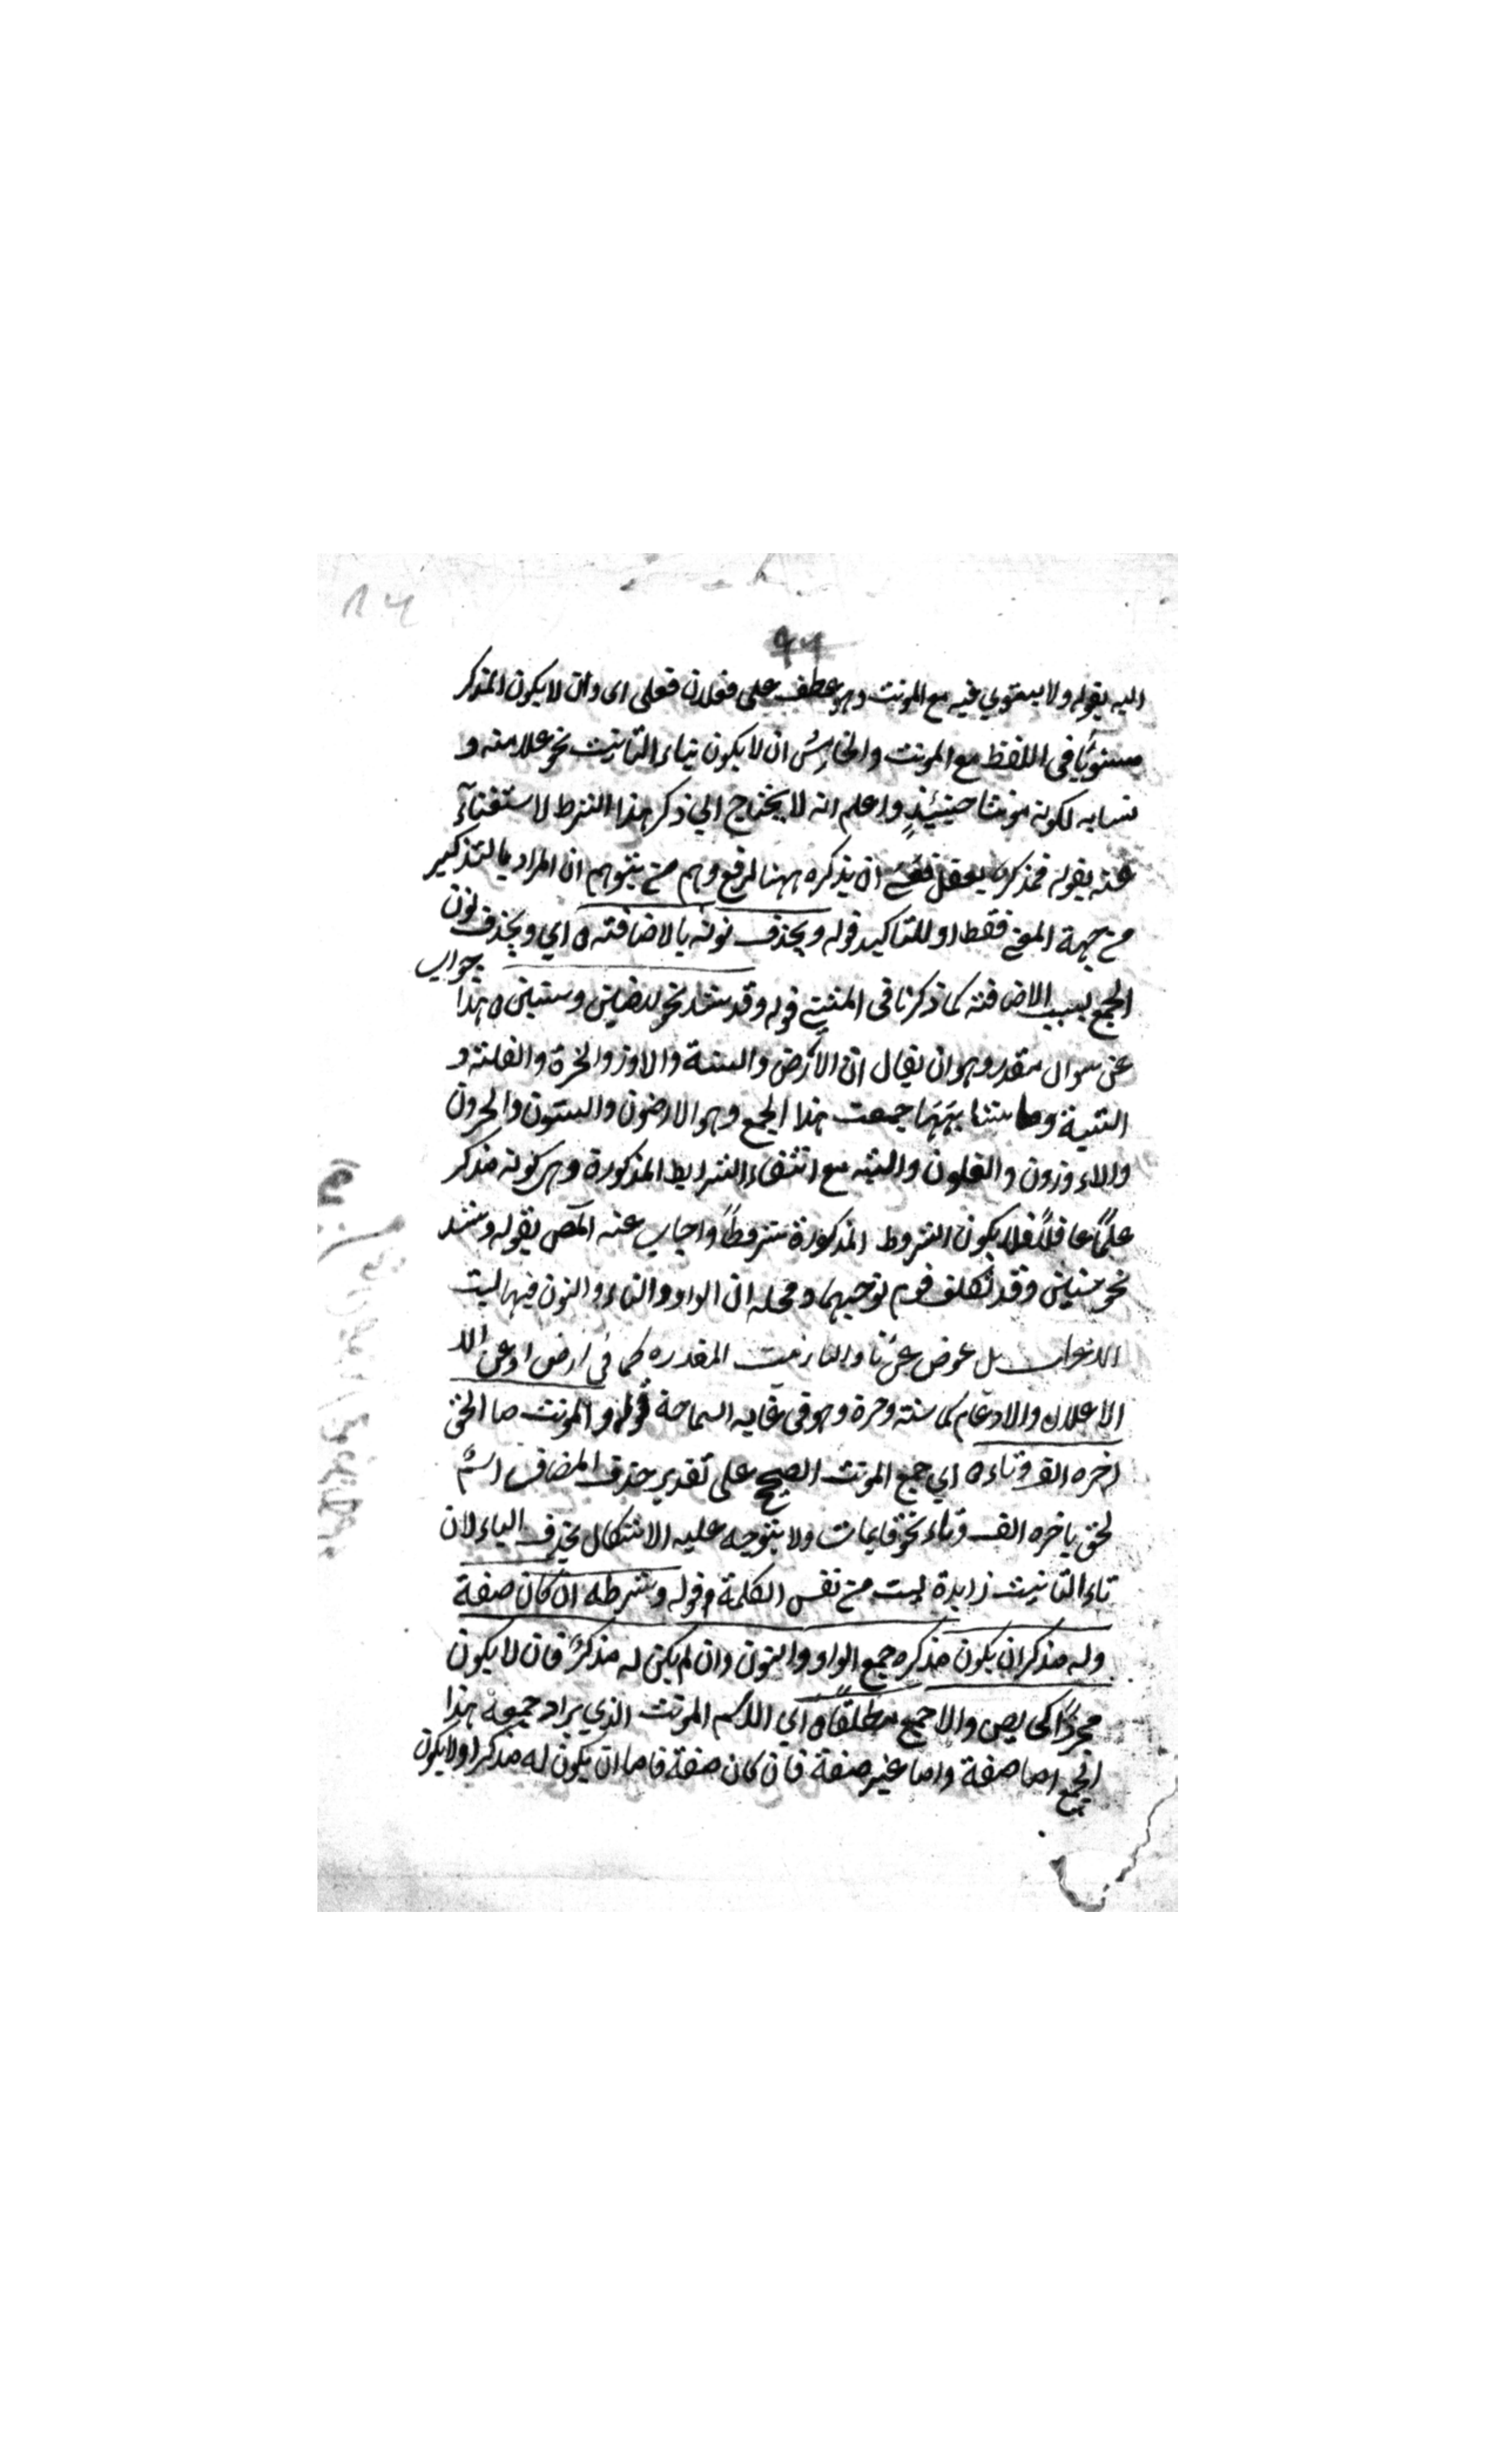 اليه بقوله ولا يستوي فيه مع المونث وهو عطف على فعلان فعلى اى وان لا يكون المذكر
مستويًا فى اللفظ مع المونث والخامس ان لا يكون بتاء التانيث نحو علامته و
نسابه لكونه مونثا حينئذٍ واعلم انه لا يحتاج الي ذكر هذا الشرط لاستغناء
عنه بقوله فمذكر يعقل ان يذكره ههنا لرفع وهم من يتوهم ان المراد بالتذكير
من جهة المعنى فقط او للتاكيد قوله ويحذف نونه بالاضافته ه اي ويحذف نون
الجمع بسبب الاضافته كما ذكرنا فى المثنى قوله وقد شذ نحو ارضين وسنين ه هذا جواب
عن سوال مقدر وهو ان يقال ان الارض والسنة والاوز والحرة والقلته و
الثبية وما شابهها جمعت هذا الجمع وهو الارضون والسنون والحرون
والاوزون والقلون والثبه مع انتفاء الشرايط المذكورة وهى كونه مذكر
علمًا عاقلًا فلا يكون الشروط المذكورة شروطًا واجاب عنه المص بقوله وشذ
نحو سنين وقد تكلف قوم توجيهها ومحله ان الواو والتاء والنون فيها ليت
بل عوض عن تاء التانيث المقدره كما في ارض او عن
الاعلال والادغام كما سنته وحرة وهو فى غايه السماحة قوله والمونث ما الحق
اخره الف وتاء ه اي جمع المونث الصحيح على تقدير حذف المضاف اسم
لحق باخره الف وتاء نحو قايمات ولا يتوجه عليه الاشكال بحذف الياء لان
تاء التانيث زايدة ليت من نفس الكلمة قوله وشرطه ان كان صفة
وله مذكر ان يكون مذكره جمع الواو والنون وان لم يكن له مذكرٌ فان لا يكون
مجردًا كحايص والا جمع مطلقًا ه اي الاسم المونث الذي يراد جمعه هذا
الجمع اما صفة واما غير صفة فان كان صفة فاما ان يكون له مذكر او لا يكون